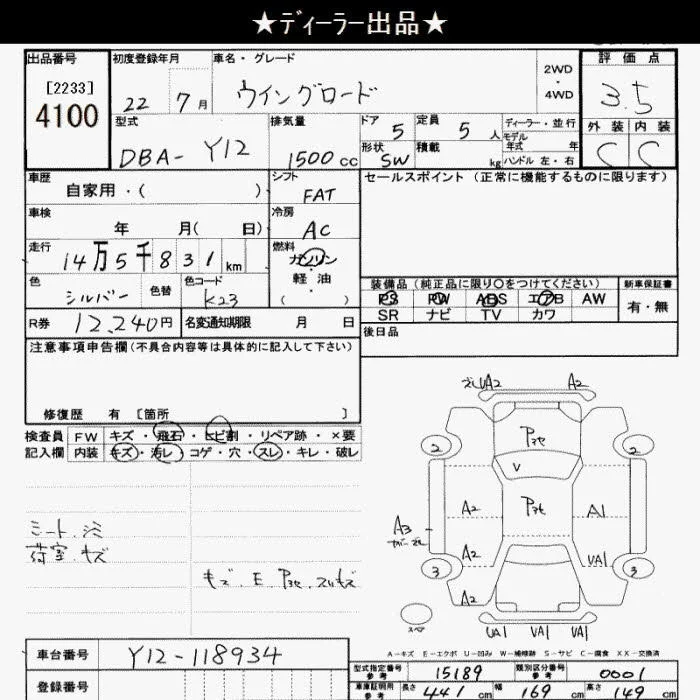 ★ディーラー出品★
出品番号 初度登録年月 車名・グレード 評価点
[2233] 2WD
4100 22 7月 ウイングロード ・ 3.5
4WD
型式 排気量 ドア 定員 ディーラー・並行 外装 内装
DBA- Y12 1500cc 5 5人 モデル年式 年 C C
形状 積載
SW kg ハンドル 左・右
車歴 シフト セールスポイント (正常に機能するものに限ります)
自家用・( ) FAT
車検 冷房
年 月( 日) AC
走行 燃料
14万5千831km ガソリン
軽・油
( )
色 色替 色コード 装備品 (純正品に限り○をつけてください) 新車保証書
シルバー K23 PS PW ABS エアB AW 有・無
SR ナビ TV カワ
R券 12,240円 名変通知期限 月 日 後日品
注意事項申告欄(不具合内容等は具体的に記入して下さい)
修復歴 有 [箇所 ]
検査員 FW キズ・飛石・ヒビ割・リペア跡・×要
記入欄 内装 キズ・汚レ・コゲ・穴・スレ・キレ・破レ
シート シミ
荷室 キズ
キズ. E
UA2 A2
2 2
V
A2 A1
A3
A2 UA1
3 3
A2
スペア
UA1 UA1 UA1
A-キズ E-エクボ U-凹み W-補修跡 S-サビ C-腐食 XX-交換済
車台番号 Y12-118934
登録番号
型式指定番号 参考 15189 類別区分番号 参考 0001
車庫証明用 参考 長さ 441cm 幅 169cm 高さ 149cm